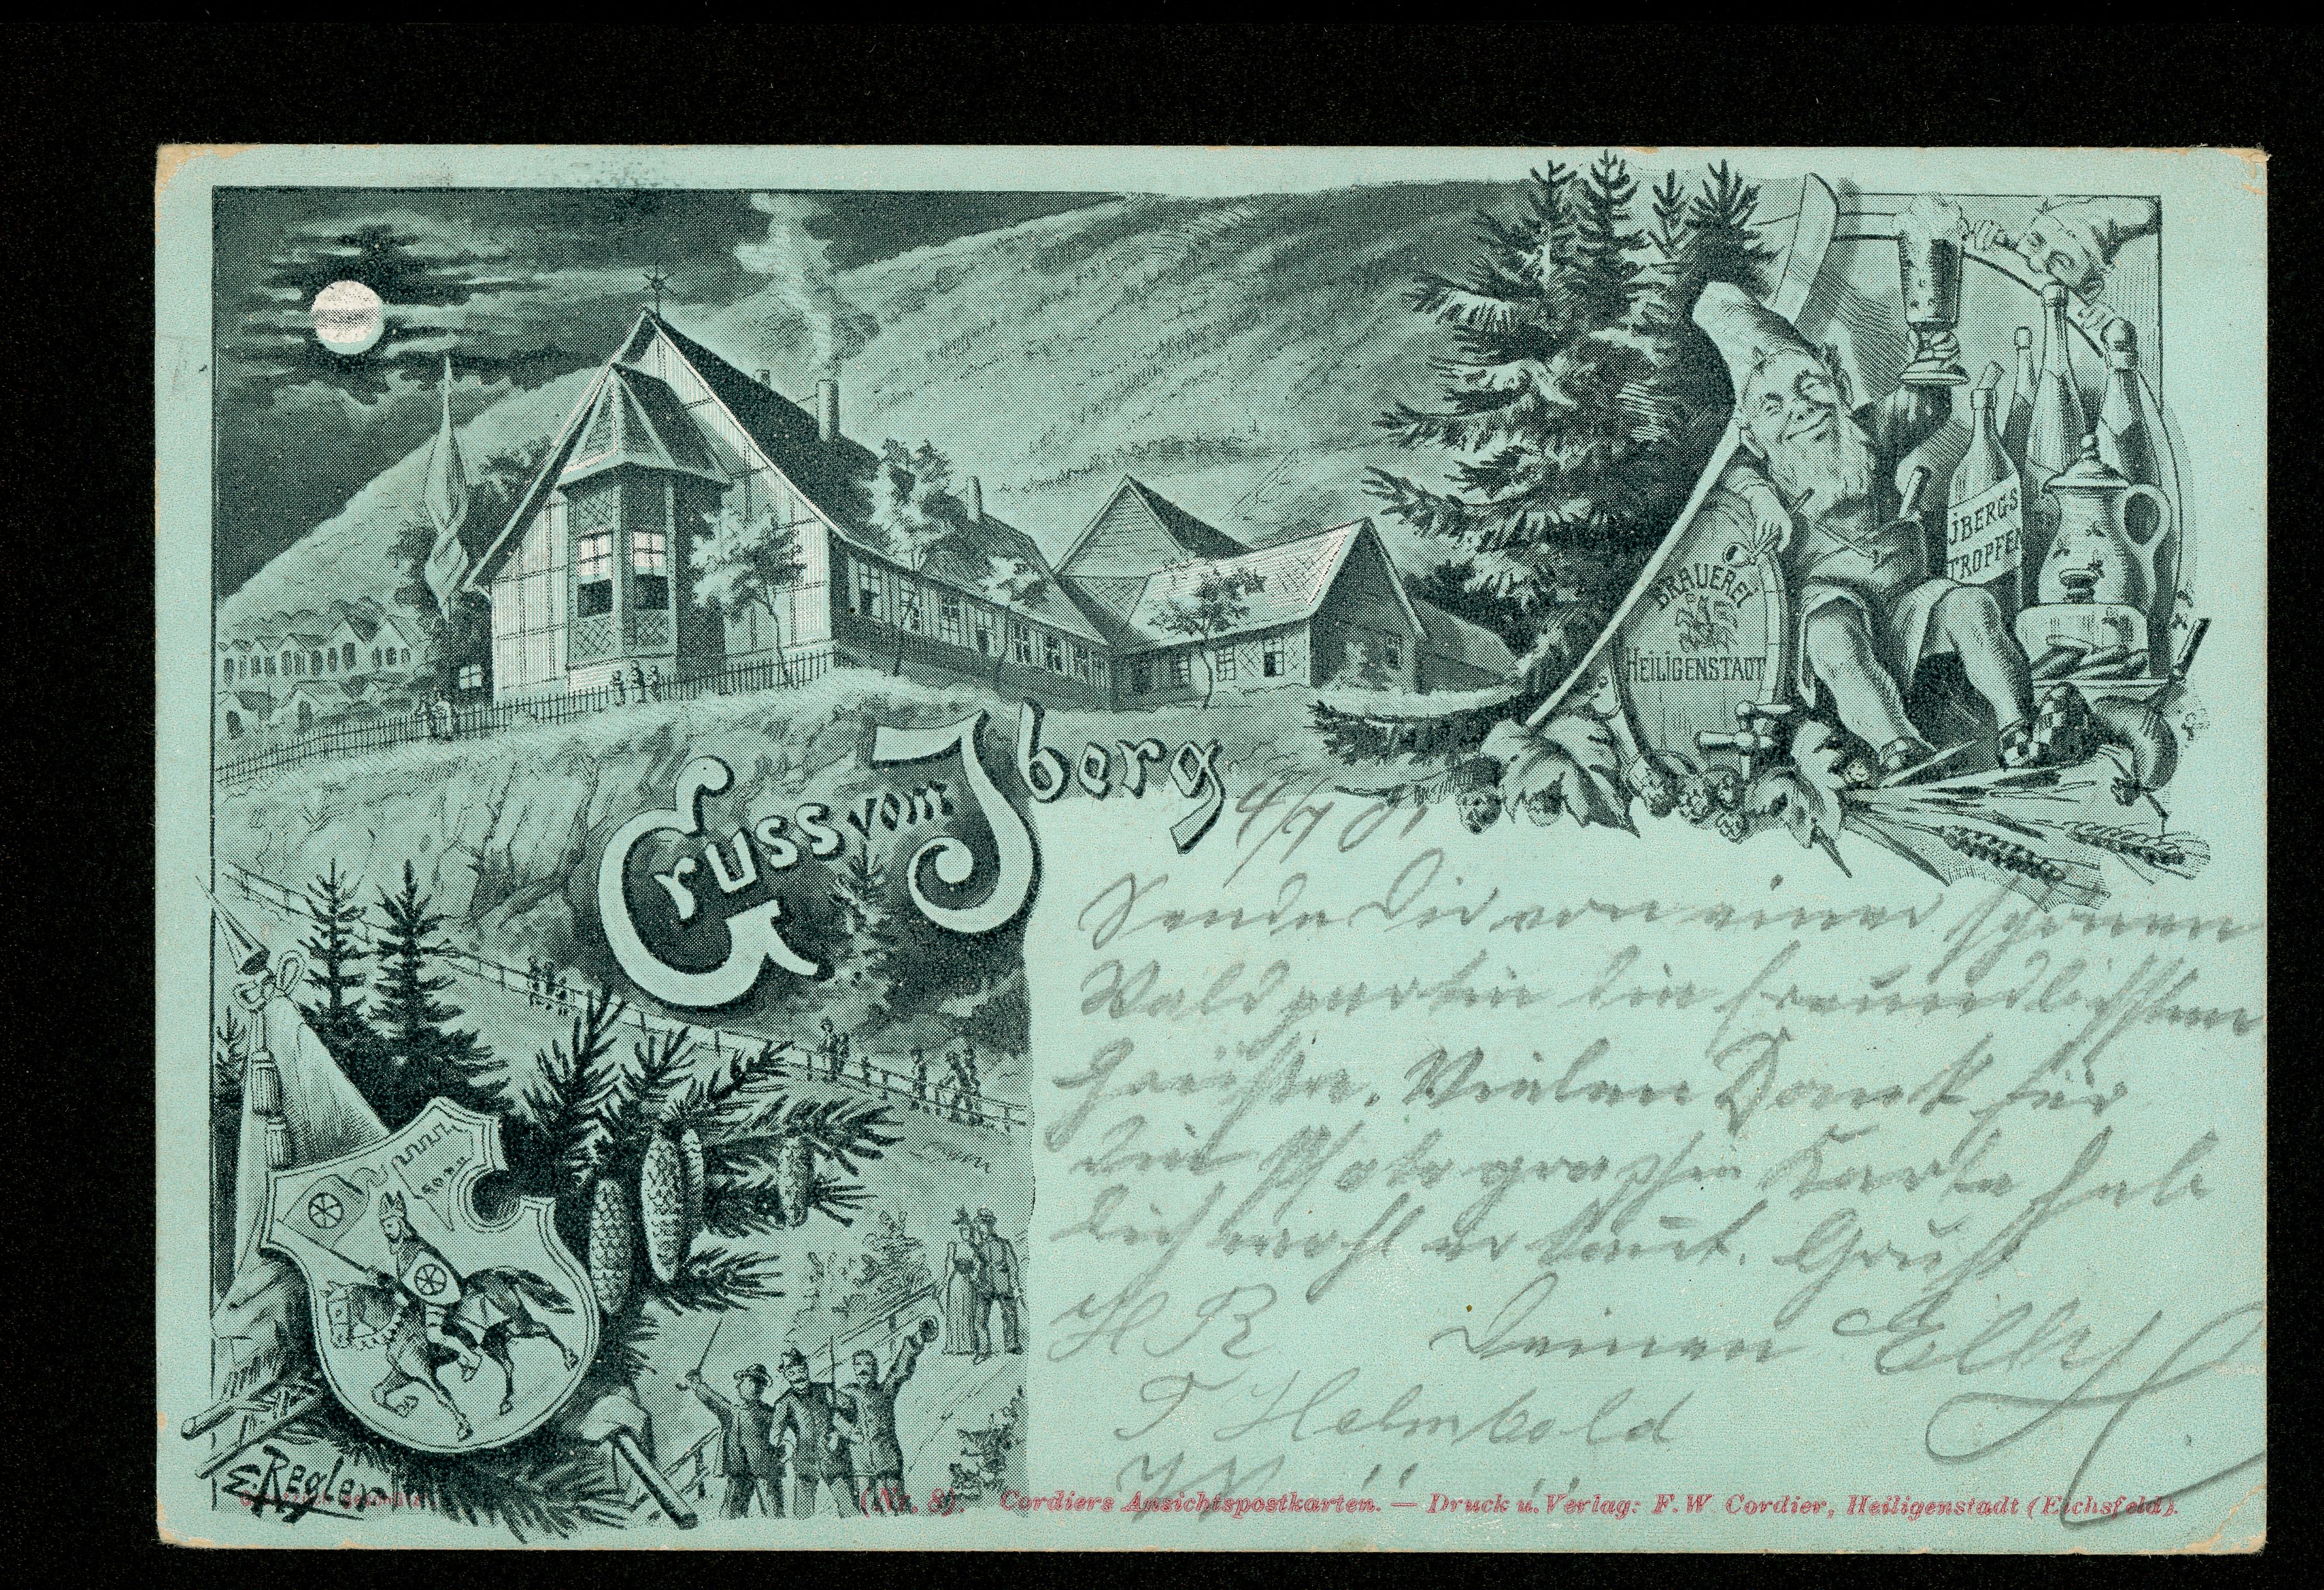 Gruss vom Iberg
BRAUEREI
HEILIGENSTADT
JBERGS
TROPFEN
4/7 01.
Sende Dir von einer schönen
Waldpartie die freundlichsten
Grüße. Vielen Dank für
die Photographie Karte hab
dich wohl erkannt. Gruß
H R Deinen
F Helmbold
E. Regler
(Nr. 8). Cordiers Ansichtspostkarten. — Druck u. Verlag: F. W. Cordier, Heiligenstadt (Eichsfeld).